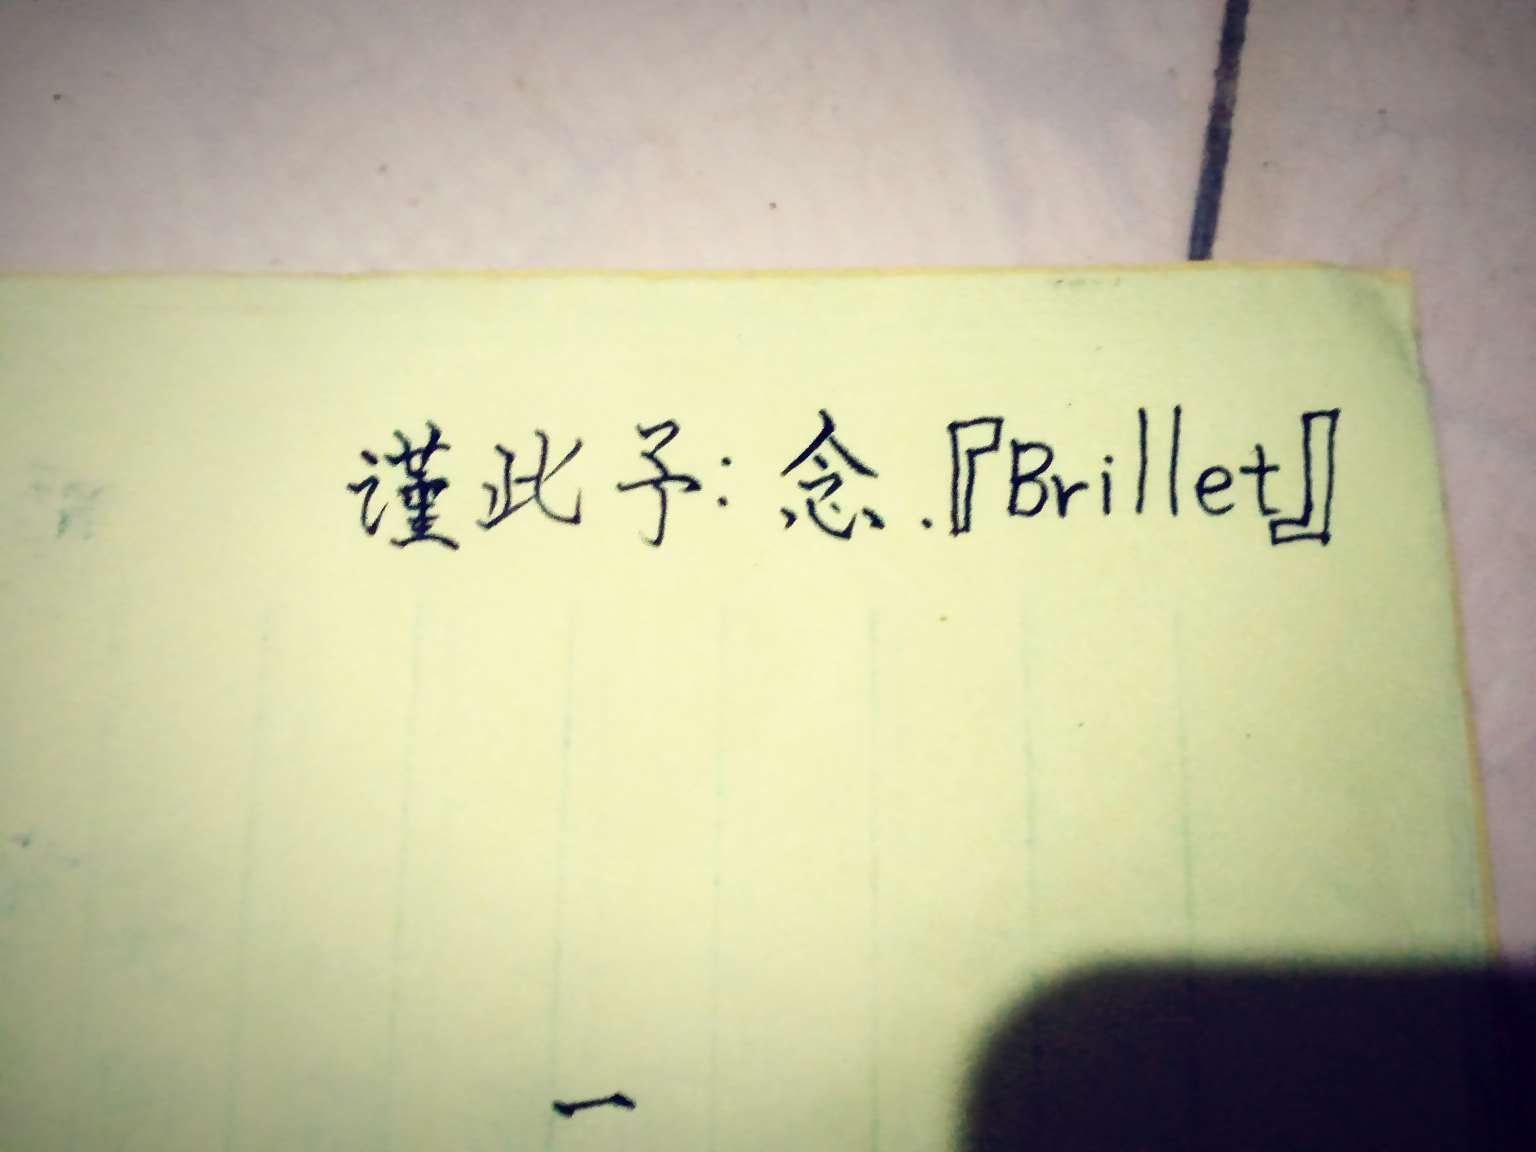 谨此予:念.『Brillet』
一